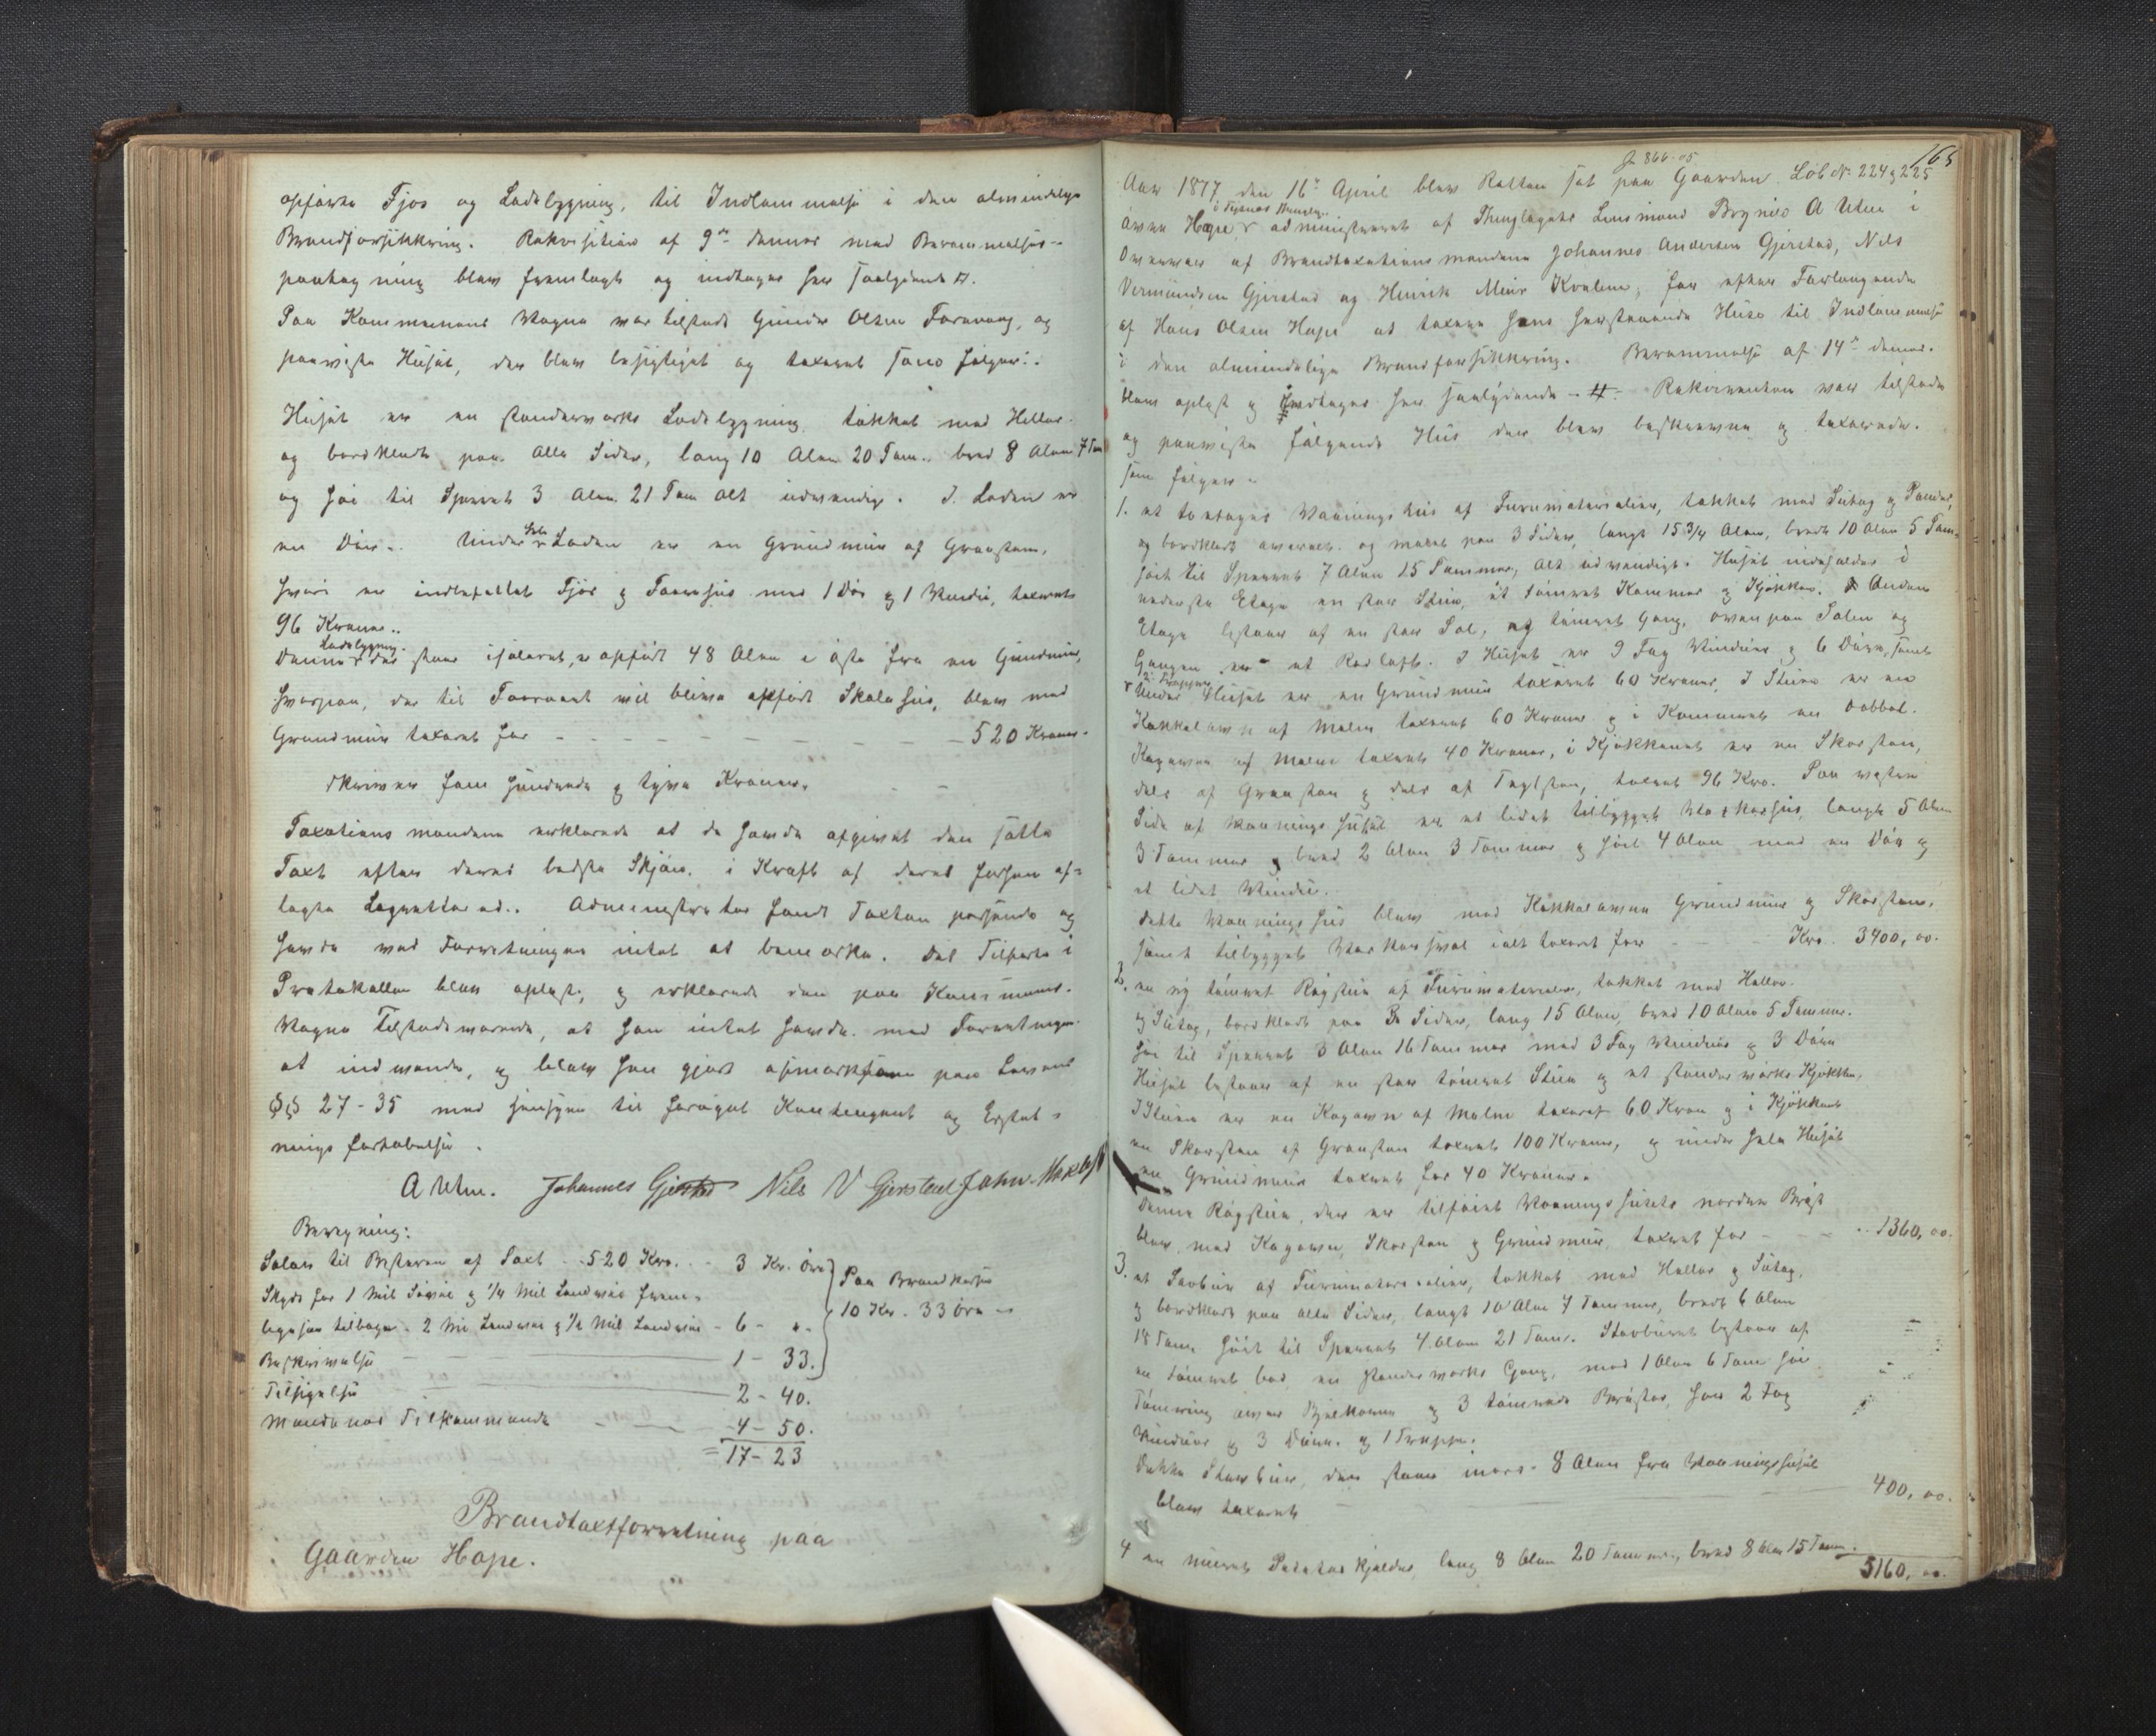 opførte Fjøs og Ladebygning, til Indlemmelse i den almindelige
Brandforsikkring. Rekvisition af 9de dennes med Berammelses-
paategning blev fremlagt og indtages her saalydende #.
Paa Kommunens Vegne var tilstede Gunder Olsen Foravaag, og
paaviste Huset, der blev besigtiget og taxeret som følger:
Huset er en standerverks Ladebygning tækket med Heller
og bordklædt paa alle Sider, lang 10 Alen 20 Tom. bred 8 Alen 7 Tom
og høi til Sperret 3 Alen 21 Tom alt udvendigt. I Laden er
en Dør. Under hele Laden er en Grundmur af Graasteen,
hvori er indbefattet Fjøs og Faarehus med 1 Dør og 1 Vindue, taxeret
96 Kroner..
Denne Ladebygning der staar isoleret, er opført 48 Alen i øst fra en Grundmur,
hvorpaa, der til Foraaret vil blive opført Skolehus, blev med
Grundmur taxeret for - - - 520 Kroner.
skriver fem hundrede og tyve Kroner.
Taxationsmændene erklærede at de havde afgivet den satte
Taxt efter deres bedste Skjøn i Kraft af deres forhen af-
lagte Lagretteed. Administrator fandt Taxten passende og
havde ved Forretningen intet at bemærke. Det Tilførte i
Protokollen blev oplæst, og erklærede den paa Kommunens
Vegne Tilstedeværende, at han intet havde mod Forretningen
at indvende, og blev han gjort opmærksom paa Lovens
§§ 27-35 med Hensyn til forøget Kontingent og Erstat-
nings fortabelse.
A Utne. Johannes Gjerstad Nils V Gjerstad John
Beregning:
Salær til Bestyreren af Taxt - 520 Kro. - 3 Kr. øre
Skyds for 1 Mil Søvei og 1/4 Mil Landvei frem-
- 6 - "
Beskrivelse - 1 - 33.
Paa Brandkassen
10 Kr. 33 øre
Tilsigelse - 2 - 40.
Mændenes Tilkommende - 4 - 50.
= 17 - 23
Brandtaxtforretning paa
Gaarden Hope.
165
Aar 1877 den 16de April blev Retten sat paa Gaarden Løb No 224 & 225
øvre Hope i Thinglag administreret af Thinglagets Lensmand Brynild A Utne i
Overvær af Brandtaxationsmændene Johannes Andersen Gjerstad, Nils
Vermundsen Gjerstad og Henrik Meier Kvalen, for efter Forlangende
af Hans Olsen Hope at taxere hans herstaaende Huse til Indlemmelse
i den almindelige Brandforsikkring. Berammelse af 14de dennes
blev oplæst og indtages her saalydende - # - Rekvirenten var tilstede
og paaviste følgende Hus der blev beskrevne og taxerede
som følger -
1. et toetages Vaaningshus af Furumaterialier, tækket med Sutag og Pander,
og bordklædt overalt og malet paa 3 Sider, langt 15 3/4 Alen, bredt 10 Alen 5 Tom-
høit til Sperret 7 Alen 15 Tommer, alt udvendigt. Huset indeholder i
nederste Etage en stor Stue, et tømret Kammer og Kjøkken. Anden
Etage bestaar af en stor Sal, og tømret Gang, ovenpaa Salen og
Gangen er et Rosloft. I Huset er 9 Fag Vinduer og 6 Døre, samt
2 Trapper
Under Huset er en Grundmur taxeret 60 Kroner, I Stuen er en
Kakkelovn af Malm taxeret 60 Kroner og i Kammeret en dobbel
Kogeovn af Malm taxeret 40 Kroner, i Kjøkkenet er en Skorsten,
dels af Graasten og dels af Teglsten, taxeret 96 Kro. Paa vestre
Side af Vaaningshuset er et lidet tilbygget langt 5 Alen
3 Tommer bred 2 Alen 3 Tommer og høit 4 Alen med en Dør og
et lidet Vindue.
dette Vaaningshus blev med Kakkelovne Grundmur og Skorsten,
samt tilbygget ialt taxeret for - Kro. 3400,00.
2. en ny tømret Røgstue af Furumaterialier, tækket med Heller
og Sutag, bordklædt paa 3 Sider, lang 15 Alen, bred 10 Alen 5 Tommer
høi til Sperret 3 Alen 16 Tommer med 3 Fag Vinduer og 3 Døre
Huset bestaar af en stor tømret Stue og et standerverks Kjøkken,
I Stuen er en Kogeovn af Malm taxeret 60 Kroner og i Kjøkkenet
en Skorsten af Graasten taxeret 100 Kroner, og under hele Huset
en Grundmur taxeret for 40 Kroner.
Denne Røgstue, der er tilføiet Vaaningshusets nordre Brøst
blev med Kogeovn, Skorsten og Grundmur taxeret for - 1360,00.
3. et Stovbur af Furumaterialier, tækket med Heller og Sutag,
og bordklædt paa alle Sider, langt 10 Alen 7 Tommer, bredt 6 Alen
15 Tom. høit til Sperret 4 Alen 21 Tom. Stovburet bestaar af
en tømret bod, en standerverks Gang, med 1 Alen 6 Tom høi
Tømring over Bjelkerne og 3 tømrede Brøster, har 2 Fag
Vinduer og 3 Døre og 1 Trappe.
Dette Stovbur, der staar 8 Alen fra Vaaningshuset
blev taxeret - 400,00.
4 en muret Potetes kjelder, lang 8 Alen 20 Tommer, bred 8 Alen 15 Tom.
5160,00.